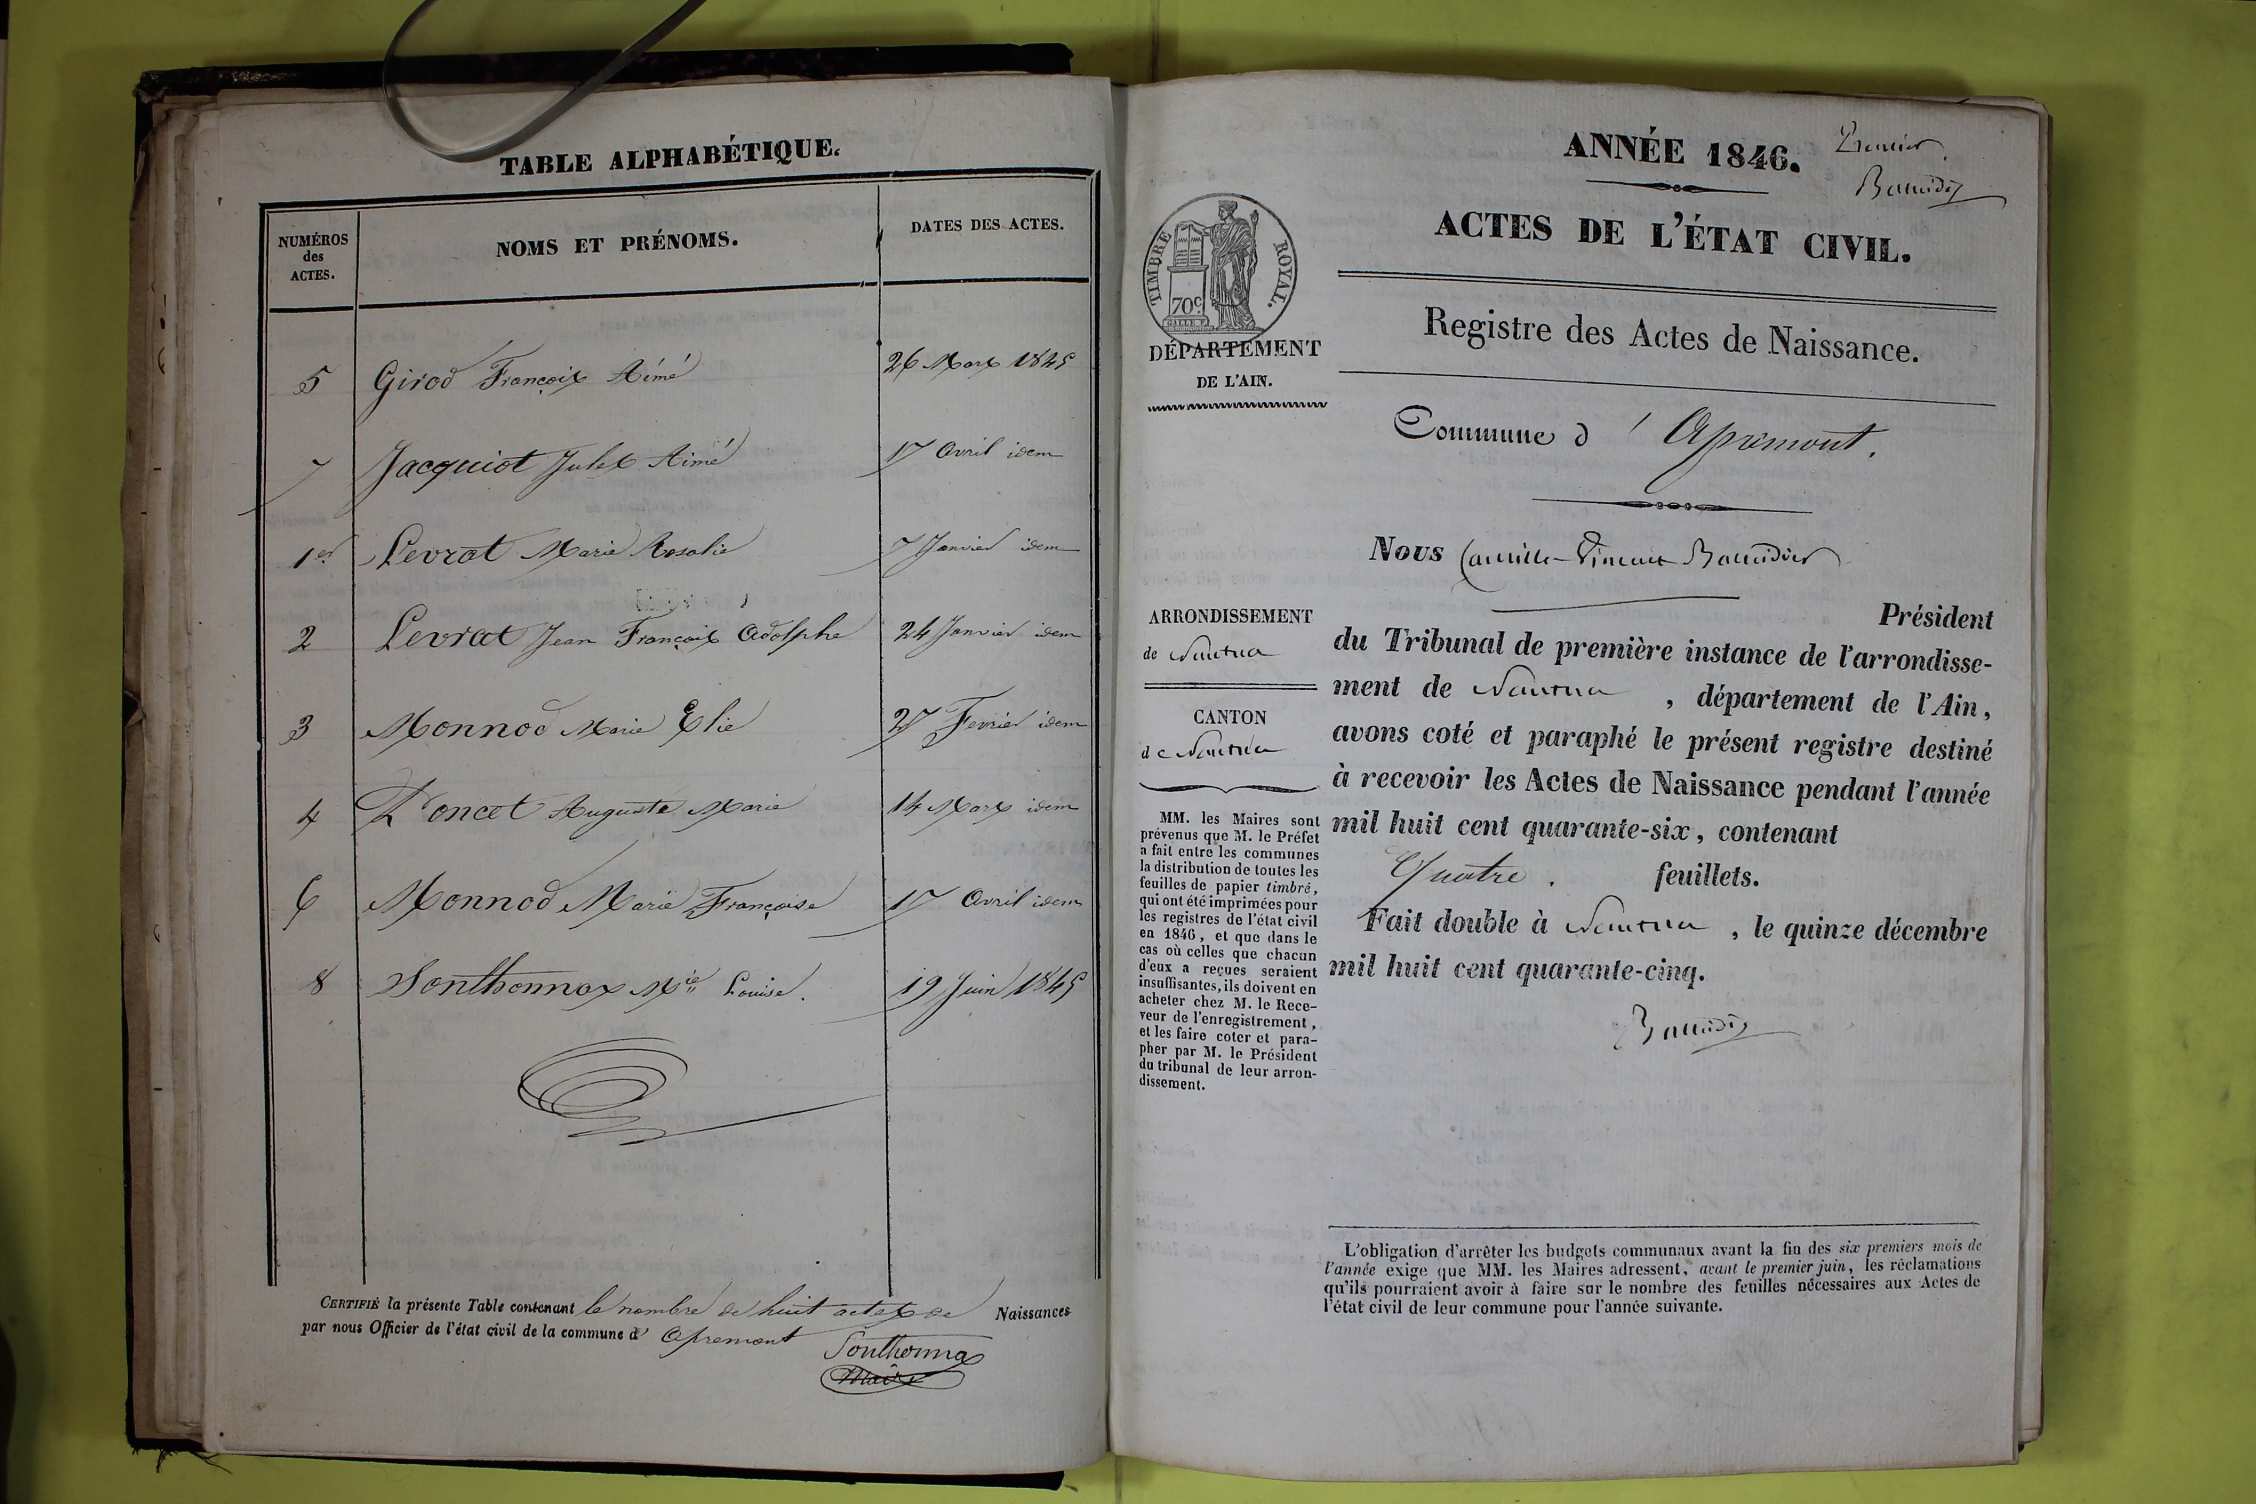 TABLE ALPHABÉTIQUE.
NUMÉROS des ACTES.
NOMS ET PRÉNOMS.
DATES DES ACTES.
5 Girod François Aimé 26 Mars 1845
7 Jacquiot Jules Aimé 17 Avril idem
1er Levrat Marie Rosalie 7 Janvier idem
2 Levrat Jean François Adolphe 24 Janvier idem
3 Monnod Marie Elie 27 Fevrier idem
4 Poncet Auguste Marie 14 Mars idem
6 Monnod Marie Françoise 17 Avril idem
8 Sonthonnax Mie Louise. 19 Juin 1845
CERTIFIÉ la présente Table contenant le nombre de huit actes de Naissances
par nous Officier de l'état civil de la commune d' Apremont
Sonthonnax
Maire
ANNÉE 1846.
Premier.
ACTES DE L'ÉTAT CIVIL.
TIMBRE ROYAL.
70c.
DÉPARTEMENT
DE L'AIN.
Registre des Actes de Naissance.
Commune d' Apremont.
Nous Camille-Vincent
Président
du Tribunal de première instance de l'arrondisse-
ment de Nantua, département de l'Ain,
avons coté et paraphé le présent registre destiné
à recevoir les Actes de Naissance pendant l'année
mil huit cent quarante-six, contenant
Quatre. feuillets.
Fait double à Nantua, le quinze décembre
mil huit cent quarante-cinq.
ARRONDISSEMENT
de Nantua
CANTON
de Nantua
MM. les Maires sont
prévenus que M. le Préfet
a fait entre les communes
la distribution de toutes les
feuilles de papier timbré,
qui ont été imprimées pour
les registres de l'état civil
en 1846, et que dans le
cas où celles que chacun
d'eux a reçues seraient
insuffisantes, ils doivent en
acheter chez M. le Rece-
veur de l'enregistrement,
et les faire coter et para-
pher par M. le Président
du tribunal de leur arron-
dissement.
L'obligation d'arrêter les budgets communaux avant la fin des six premiers mois de
l'année exige que MM. les Maires adressent, avant le premier juin, les réclamations
qu'ils pourraient avoir à faire sur le nombre des feuilles nécessaires aux Actes de
l'état civil de leur commune pour l'année suivante.